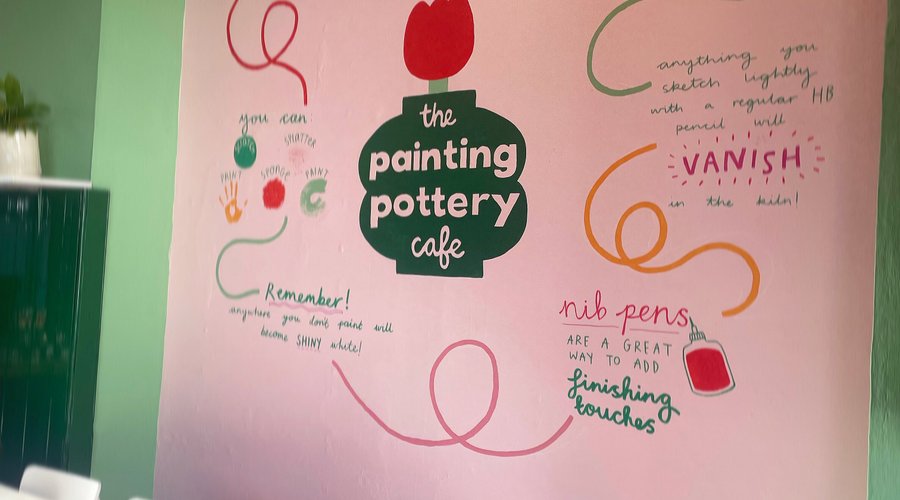 the
painting
pottery
cafe
you can:
SPLATTER
PAINT
SPONGE
PAINT
Remember!
anywhere you don't paint will
become SHINY white!
anything you
sketch lightly
with a regular HB
pencil will
VANISH
in the kiln!
nib pens
ARE A GREAT
WAY TO ADD
finishing
touches